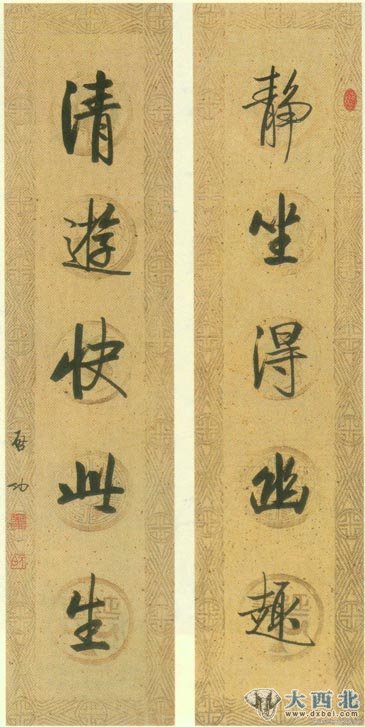 静坐得幽趣
清遊快此生
启功
大西北
www.dxbei.com